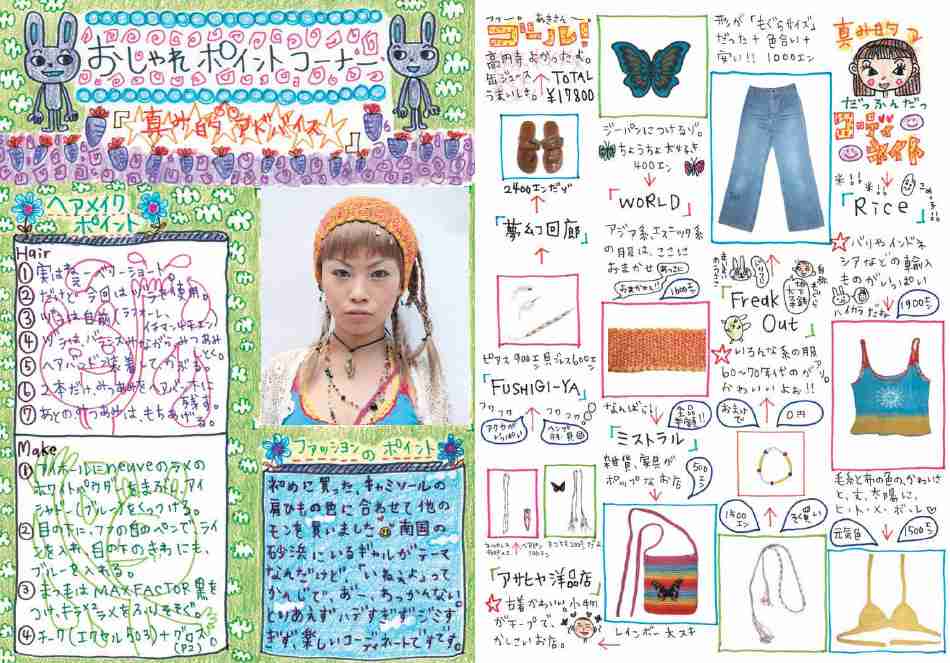 おしゃれポイントコーナー
『真み的アドバイス』
ヘアメイク
ポイント
Hair
① 実は超ーベリーショート。
② だけど今回はヅラを使用。
③ ヅラは自前(ラフォーレ、
④ ヅラは、バランスみながら、みつあみ
⑤ ヘアバンド装着してかぶる。
⑥ 2本だけ、みつあみをヘアバンドに
残す。
⑦ あとのみつあみは、もちあげる。
Make
① アイホールにneuveのラメの
ホワイトパウダーをまぶし、アイ
シャドー(ブルー)をくっつける。
② 目の下に、アナの目のペンでライ
ンを入れ、目の下のきわにも、
ブルーを入れる。
③ まつ毛はMAXFACTOR黒を
つけ、キラメラメをふりそそぐ。
④ チーク(エクセル503)+グロス。
(P2)
ファッションのポイント
初めに買った、キャミソールの
肩ひもの色に合わせて他の
モンを買いました 南国の
砂浜にいるギャルがテーマ
なんだけど、「いねぇよ」って
かんじで、あー、あっかんない。
とりあえず、ハデすぎずジミす
ぎず、楽しいコーディネートですです。
ゴール!
高円寺よかったな。
缶ジュース
うまいしさ。
TOTAL
¥17800
2400エンだゾ
「夢幻回廊」
ピアス 900エン 貝ブレス600エン
「FUSHIGI-YA」
フワフワ
フワフワ
「アサヒヤ洋品店」
☆古着かわいい。小物
がチープで、
かしこいお店。
ジーパンにつけるゾ。
ちょうちょ大好き
400エン
「WORLD」
アジア系、エスニック系
の服は、ここに
おまかせ
1600エン
なんばら!
「ミストラル」
雑貨、家具が
ポップなお店
500
エン
レインボー大スキ
形が「もぐらサイズ」
だった+色合い+
安い!! 1000エン
「Freak
Out」
☆いろんな系の服
60〜70年代のがアリ。
かわいいよぉ!!
おまけで
0円
1400
エン
真み的ァ
だっふんだっ
コーディ
ネイト
「Rice」
☆バリやインドネ
シアなどの輸入
ものがいっぱい
ハイカラだね
1900えん
毛糸と布の色、かわいさ
と、え、太陽に、
ヒ・ト・メ・ボ・レ♡
元気色
1500えん